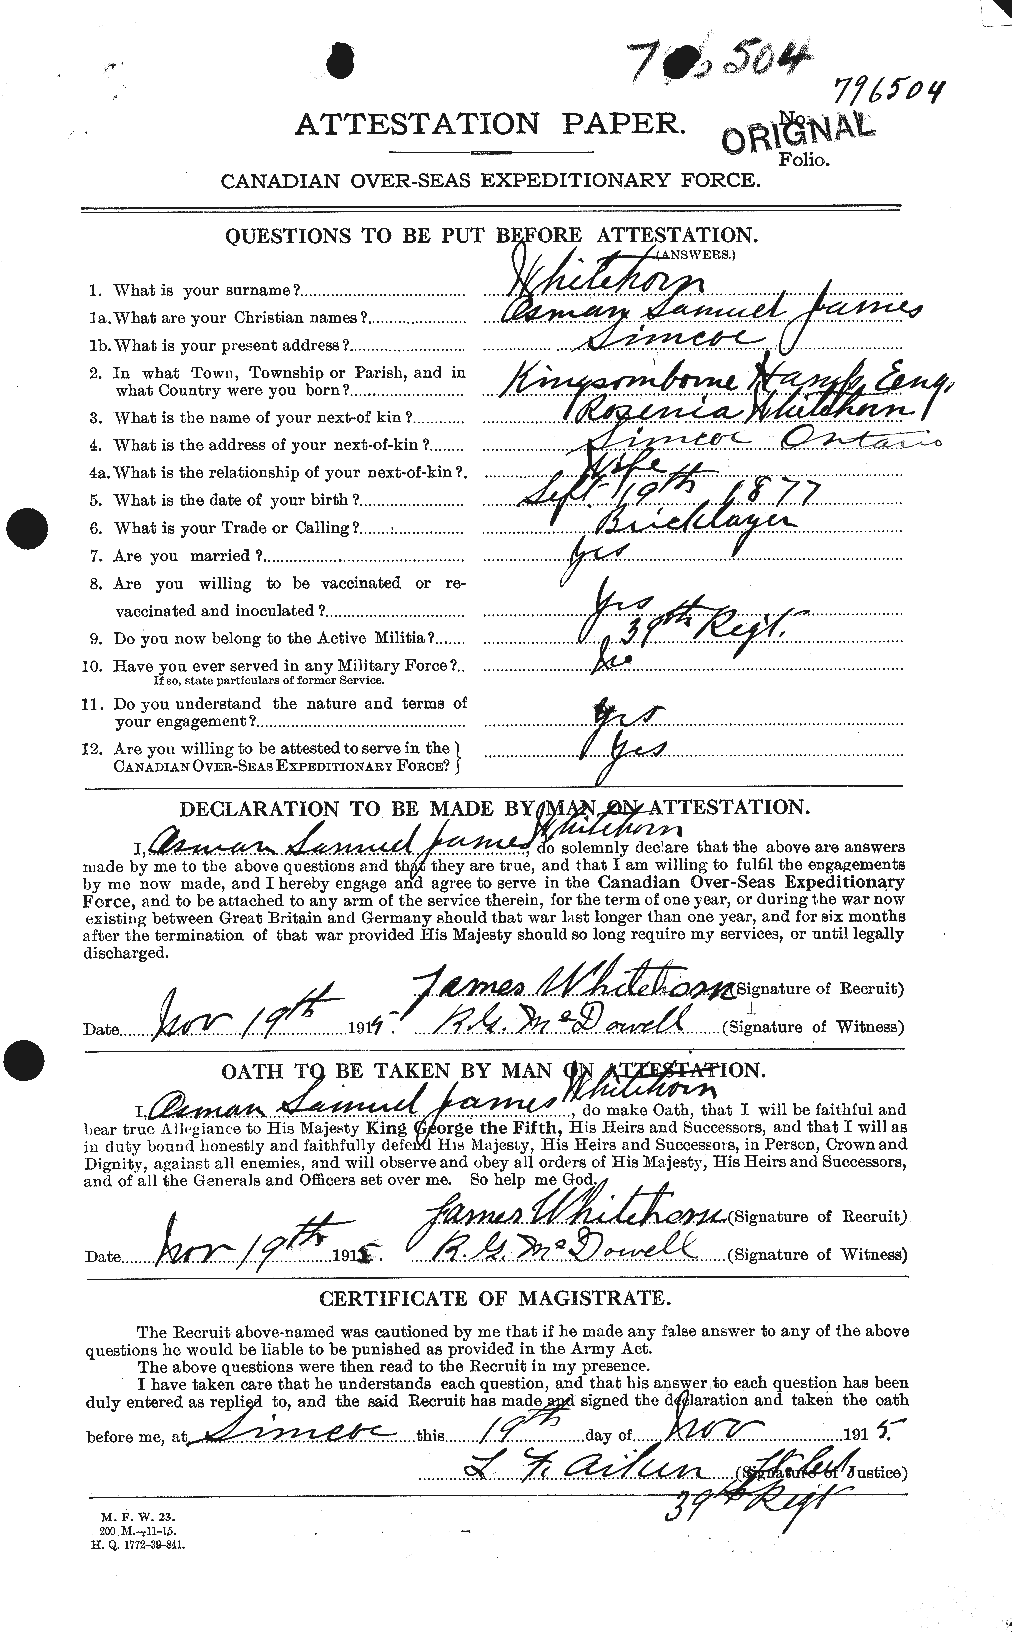 504
796504
ATTESTATION PAPER.
No.
ORIGNAL
Folio.
CANADIAN OVER-SEAS EXPEDITIONARY FORCE.
QUESTIONS TO BE PUT BEFORE ATTESTATION.
(ANSWERS.)
1. What is your surname? Whitehorn
1a. What are your Christian names? Osman Samuel James
1b. What is your present address? Simcoe
2. In what Town, Township or Parish, and in
what Country were you born? Kingsomborne Hamp. Eng.
3. What is the name of your next-of kin? Rosenia Whitehorn
4. What is the address of your next-of-kin? Simcoe Ontario
4a. What is the relationship of your next-of-kin? Wife
5. What is the date of your birth? Sept. 19th 1877
6. What is your Trade or Calling? Bricklayer
7. Are you married? Yes
8. Are you willing to be vaccinated or re-
vaccinated and inoculated? Yes
9. Do you now belong to the Active Militia? 39th Regt.
10. Have you ever served in any Military Force? No
If so, state particulars of former Service.
11. Do you understand the nature and terms of
your engagement? Yes
12. Are you willing to be attested to serve in the
CANADIAN OVER-SEAS EXPEDITIONARY FORCE? Yes
DECLARATION TO BE MADE BY MAN ON ATTESTATION.
I, Osman Samuel James Whitehorn, do solemnly declare that the above are answers
made by me to the above questions and that they are true, and that I am willing to fulfil the engagements
by me now made, and I hereby engage and agree to serve in the Canadian Over-Seas Expeditionary
Force, and to be attached to any arm of the service therein, for the term of one year, or during the war now
existing between Great Britain and Germany should that war last longer than one year, and for six months
after the termination of that war provided His Majesty should so long require my services, or until legally
discharged.
James Whitehorn (Signature of Recruit)
Date Nov 19th 1915. R.G. McDowell (Signature of Witness)
OATH TO BE TAKEN BY MAN ON ATTESTATION.
I, Osman Samuel James Whitehorn, do make Oath, that I will be faithful and
bear true Allegiance to His Majesty King George the Fifth, His Heirs and Successors, and that I will as
in duty bound honestly and faithfully defend His Majesty, His Heirs and Successors, in Person, Crown and
Dignity, against all enemies, and will observe and obey all orders of His Majesty, His Heirs and Successors,
and of all the Generals and Officers set over me. So help me God.
James Whitehorn (Signature of Recruit)
Date Nov 19th 1915. R.G. McDowell (Signature of Witness)
CERTIFICATE OF MAGISTRATE.
The Recruit above-named was cautioned by me that if he made any false answer to any of the above
questions he would be liable to be punished as provided in the Army Act.
The above questions were then read to the Recruit in my presence.
I have taken care that he understands each question, and that his answer to each question has been
duly entered as replied to, and the said Recruit has made and signed the declaration and taken the oath
before me, at Simcoe this 19th day of Nov 1915.
L F. Aiken Lt Col (Signature of Justice)
39th Regt
M. F. W. 23.
200 M.-11-15.
H. Q. 1772-39-841.